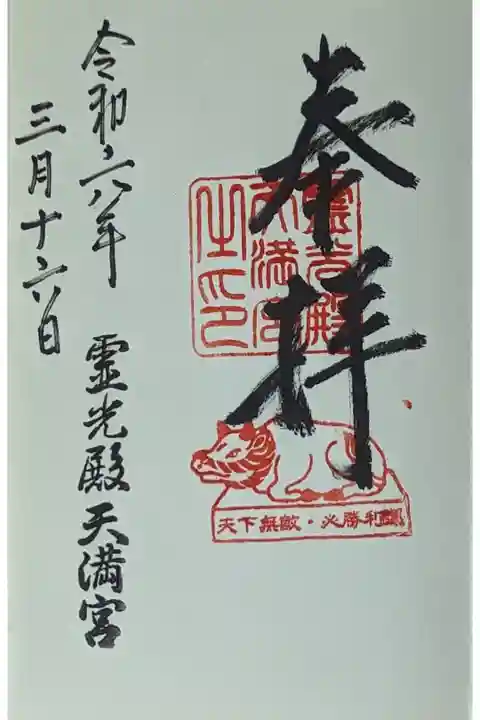 奉拝
霊光殿
天満宮
之印
天下無敵・必勝利運
令和六年
三月十六日
霊光殿天満宮